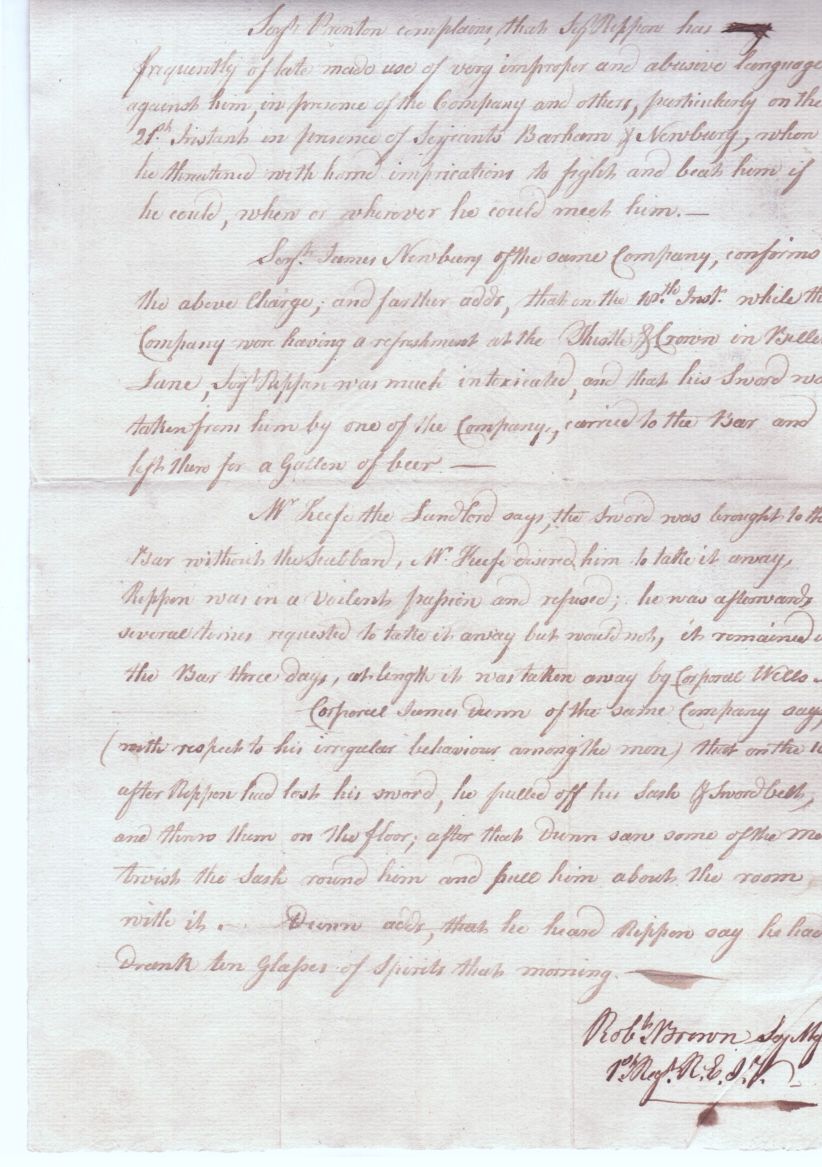 Serjt. Prenton complains, that Serjt. Rippon has
frequently of late made use of very improper and abusive language
against him, in presence of the Company and others, particularly on the
21st. Instant in presence of Serjeants Barham & Newbury, when
he threatined with horrid imprications to fight and beat him if
he could, when or wherever he could meet him. —
Serjt. James Newbury of the same Company, confirms
the above Charge; and farther adds, that on the Inst. while the
Company were having a refreshment at the Thistle & Crown in
Lane, Serjt. Rippon was much intoxicated, and that his Sword
taken from him by one of the Company, carried to the Bar and
left there for a Gallon of beer —
Mr. Keefe the Landlord says, the sword was brought to the
Bar without the Scabbard, Mr. Keefe desired him to take it away,
Rippon was in a Voilent passion and refused; he was afterwards
several times requested to take it away but would not, it remained
the Bar three days, at length it was taken away by Corporal Wells
Corporal James Dunn of the same Company says,
(with respect to his irregular behaviour among the men) that on the
after Rippon had lost his sword, he pulled off his Sash & Swordbelt,
and threw them on the floor; after that Dunn saw some of the
twist the Sash round him and pull him about the room
with it. Dunn adds, that he heard Rippon say he had
drank ten Glasses of Spirits that morning. —
Robt. Brown
1st. Regt. R. E. I. V.